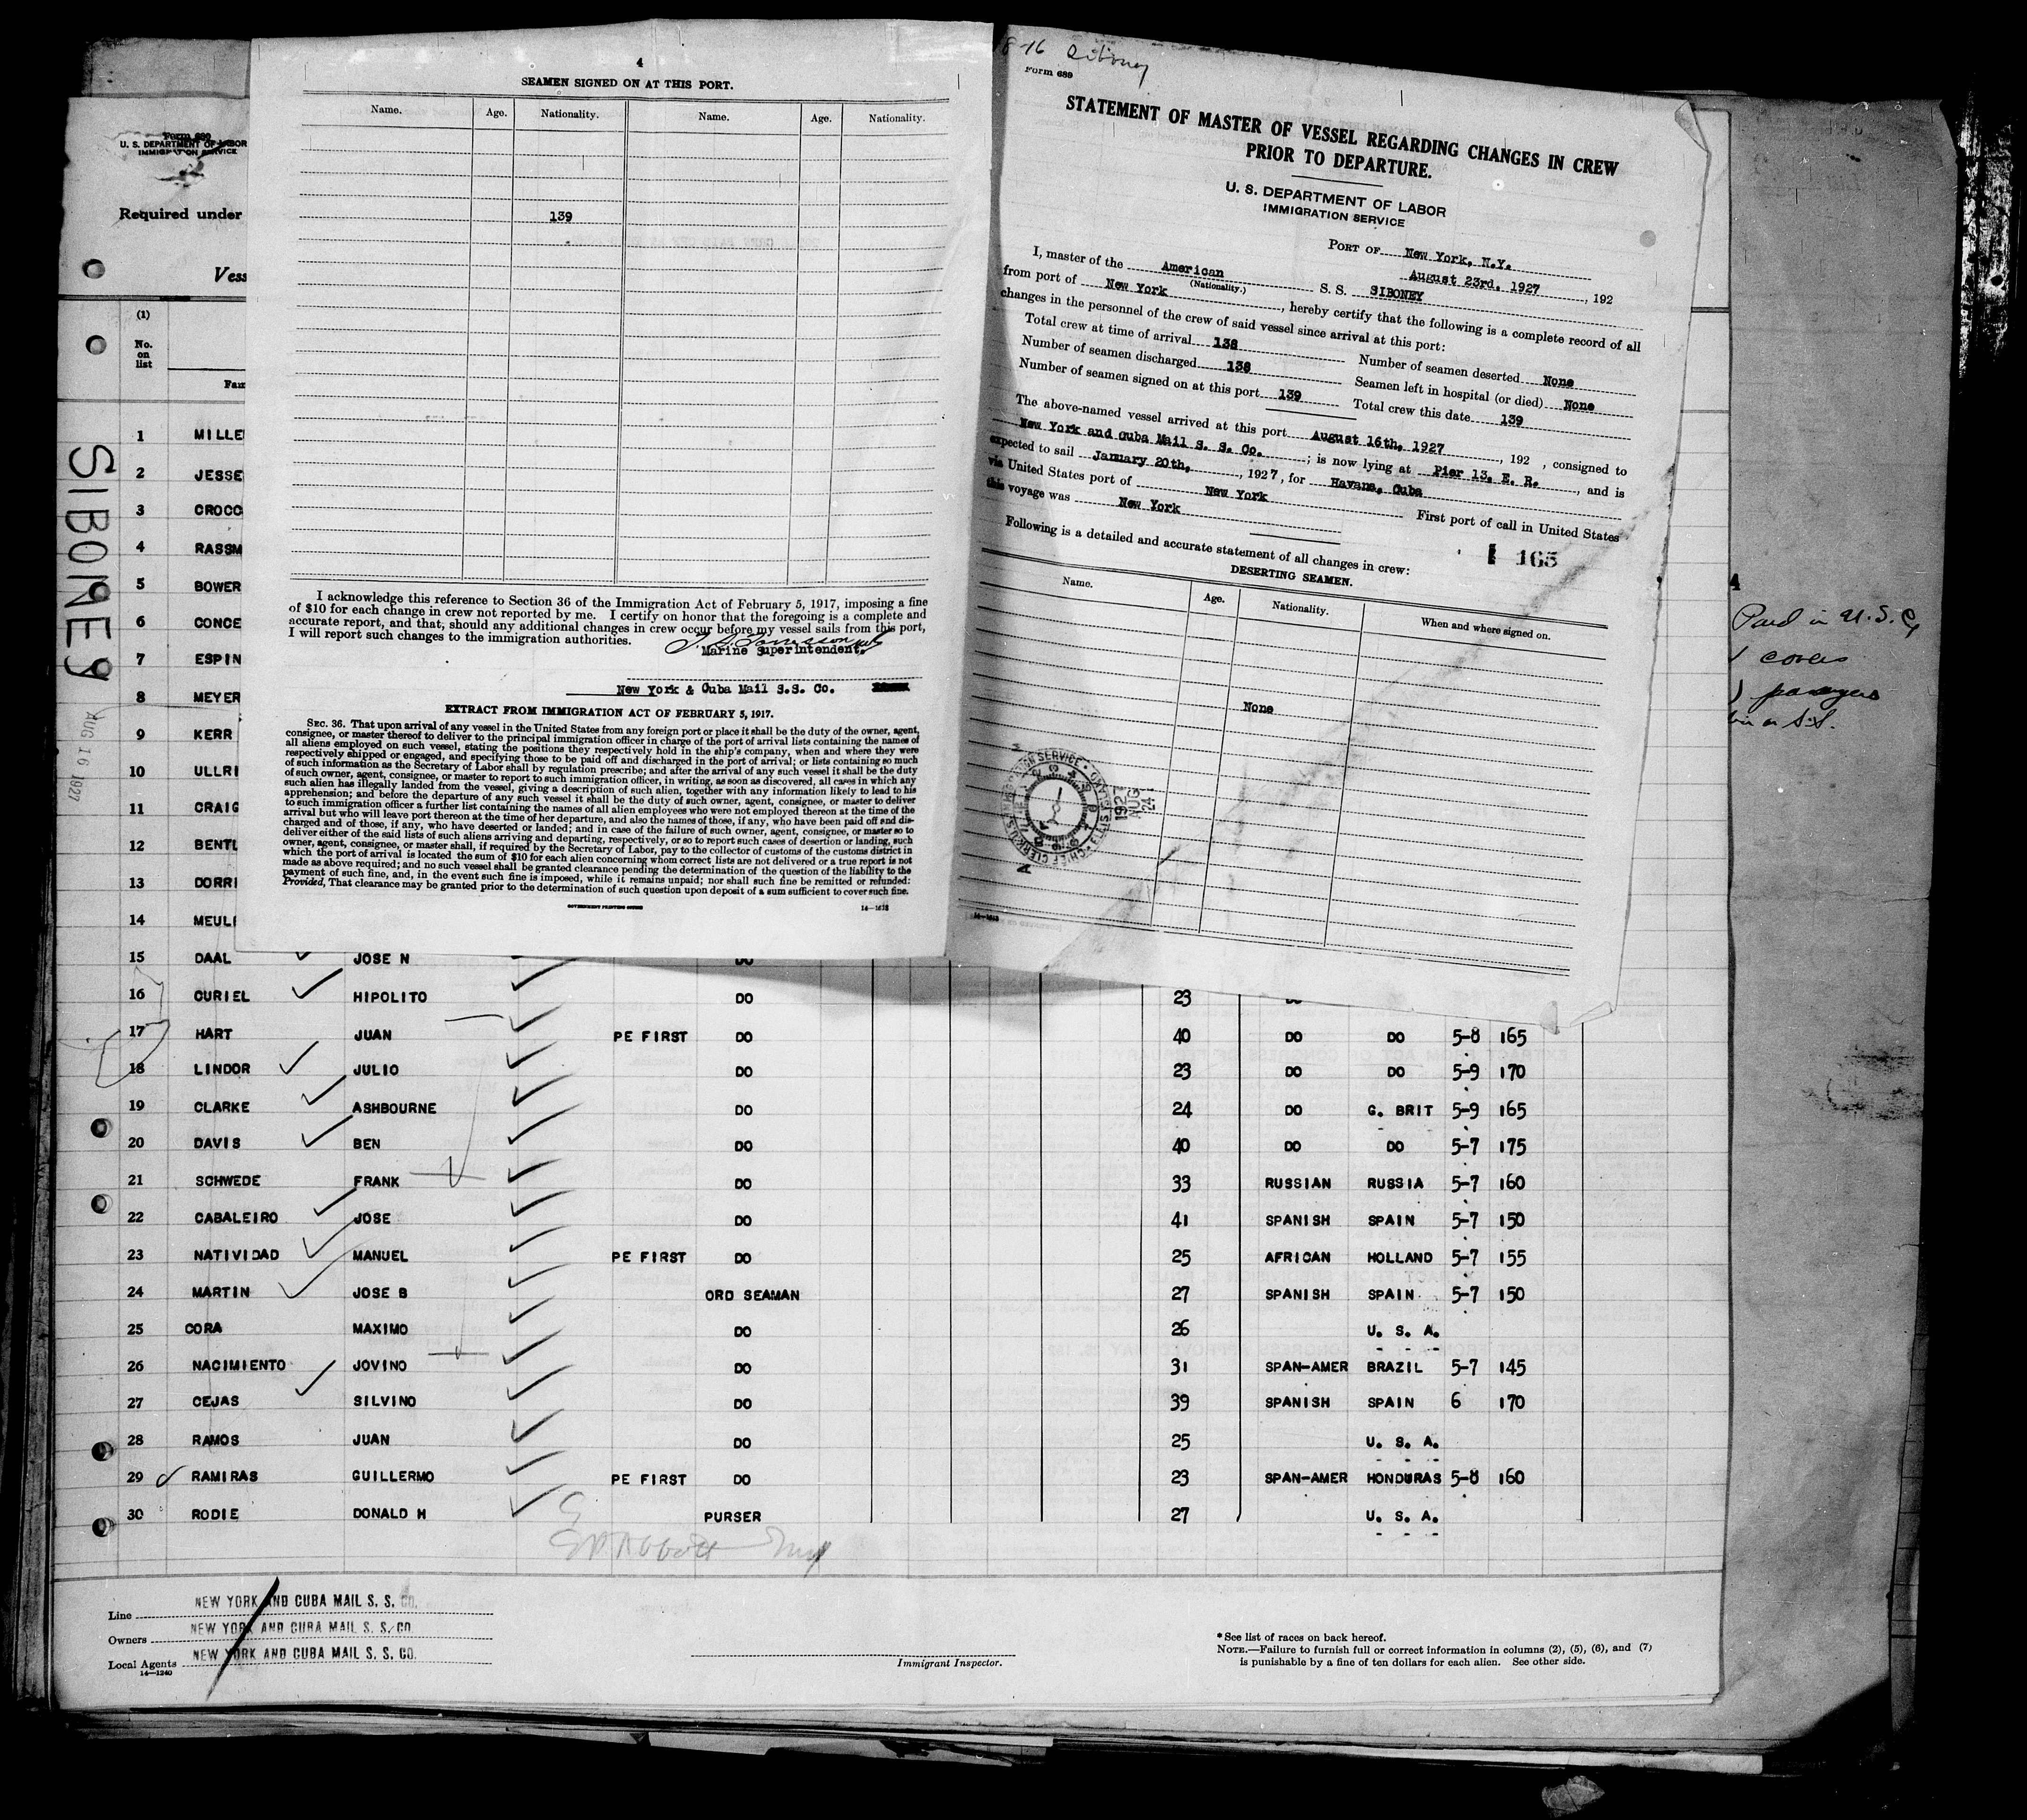 4
SEAMEN SIGNED ON AT THIS PORT.
Name. Age. Nationality. Name. Age. Nationality.
139
I acknowledge this reference to Section 36 of the Immigration Act of February 5, 1917, imposing a fine
of $10 for each change in crew not reported by me. I certify on honor that the foregoing is a complete and
accurate report, and that, should any additional changes in crew occur before my vessel sails from this port,
I will report such changes to the immigration authorities.
Marine Superintendent.
New York & Cuba Mail S.S. Co.
EXTRACT FROM IMMIGRATION ACT OF FEBRUARY 5, 1917.
SEC. 36. That upon arrival of any vessel in the United States from any foreign port or place it shall be the duty of the owner, agent,
consignee, or master thereof to deliver to the principal immigration officer in charge of the port of arrival lists containing the names of
all aliens employed on such vessel, stating the positions they respectively hold in the ship's company, when and where they were
respectively shipped or engaged, and specifying those to be paid off and discharged in the port of arrival; or lists containing so much
of such information as the Secretary of Labor shall by regulation prescribe; and after the arrival of any such vessel it shall be the duty
of such owner, agent, consignee, or master to report to such immigration officer, in writing, as soon as discovered, all cases in which any
such alien has illegally landed from the vessel, giving a description of such alien, together with any information likely to lead to his
apprehension; and before the departure of any such vessel it shall be the duty of such owner, agent, consignee, or master to deliver
to such immigration officer a further list containing the names of all alien employees who were not employed thereon at the time of the
arrival but who will leave port thereon at the time of her departure, and also the names of those, if any, who have been paid off and dis-
charged and of those, if any, who have deserted or landed; and in case of the failure of such owner, agent, consignee, or master so to
deliver either of the said lists of such aliens arriving and departing, respectively, or so to report such cases of desertion or landing, such
owner, agent, consignee, or master shall, if required by the Secretary of Labor, pay to the collector of customs of the customs district in
which the port of arrival is located the sum of $10 for each alien concerning whom correct lists are not delivered or a true report is not
made as above required; and no such vessel shall be granted clearance pending the determination of the question of the liability to the
payment of such fine, and, in the event such fine is imposed, while it remains unpaid; nor shall such fine be remitted or refunded:
Provided, That clearance may be granted prior to the determination of such question upon deposit of a sum sufficient to cover such fine.
GOVERNMENT PRINTING OFFICE 14—1613
8-16 Siboney
Form 689
STATEMENT OF MASTER OF VESSEL REGARDING CHANGES IN CREW
PRIOR TO DEPARTURE.
U. S. DEPARTMENT OF LABOR
IMMIGRATION SERVICE
PORT OF New York, N.Y.
August 23rd, 1927, 192
I, master of the American S. S. SIBONEY
(Nationality.)
from port of New York, hereby certify that the following is a complete record of all
changes in the personnel of the crew of said vessel since arrival at this port:
Total crew at time of arrival 138 Number of seamen deserted None
Number of seamen discharged 138 Seamen left in hospital (or died) None
Number of seamen signed on at this port 139 Total crew this date 139
The above-named vessel arrived at this port August 16th, 1927, 192 , consigned to
New York and Cuba Mail S. S. Co.; is now lying at Pier 13, E. R., and is
expected to sail January 20th, 1927, for Havana, Cuba
via United States port of New York First port of call in United States
this voyage was New York
165
Following is a detailed and accurate statement of all changes in crew:
DESERTING SEAMEN.
Name. Age. Nationality. When and where signed on.
None
1927 AUG 24
14—1613
Form 689
U. S. DEPARTMENT OF LABOR
IMMIGRATION SERVICE
Required under
Vess
(1)
No.
on
list
Fam
SIBONEY
AUG 16 1927
1 MILLE
2 JESSE
3 CROCC
4 RASSM
5 BOWER
6 CONCE
7 ESPIN
8 MEYER
9 KERR
10 ULLRI
11 CRAIG
12 BENTL
13 DORRI
14 MEUL
15 DAAL JOSE N DO
16 CURIEL HIPOLITO DO 23 DO
17 HART JUAN PE FIRST DO 40 DO DO 5-8 165
18 LINDOR JULIO DO 23 DO DO 5-9 170
19 CLARKE ASHBOURNE DO 24 DO G. BRIT 5-9 165
20 DAVIS BEN DO 40 DO DO 5-7 175
21 SCHWEDE FRANK DO 33 RUSSIAN RUSSIA 5-7 160
22 CABALEIRO JOSE DO 41 SPANISH SPAIN 5-7 150
23 NATIVIDAD MANUEL PE FIRST DO 25 AFRICAN HOLLAND 5-7 155
24 MARTIN JOSE B ORD SEAMAN 27 SPANISH SPAIN 5-7 150
25 CORA MAXIMO DO 26 U. S. A.
26 NACIMIENTO JOVINO DO 31 SPAN-AMER BRAZIL 5-7 145
27 CEJAS SILVINO DO 39 SPANISH SPAIN 6 170
28 RAMOS JUAN DO 25 U. S. A.
29 RAMIRAS GUILLERMO PE FIRST DO 23 SPAN-AMER HONDURAS 5-8 160
30 RODIE DONALD H PURSER 27 U. S. A.
Line NEW YORK AND CUBA MAIL S. S. CO.
Owners NEW YORK AND CUBA MAIL S. S. CO.
Local Agents NEW YORK AND CUBA MAIL S. S. CO.
14—1240
Immigrant Inspector.
*See list of races on back hereof.
NOTE.—Failure to furnish full or correct information in columns (2), (5), (6), and (7)
is punishable by a fine of ten dollars for each alien. See other side.
Paid in U.S.